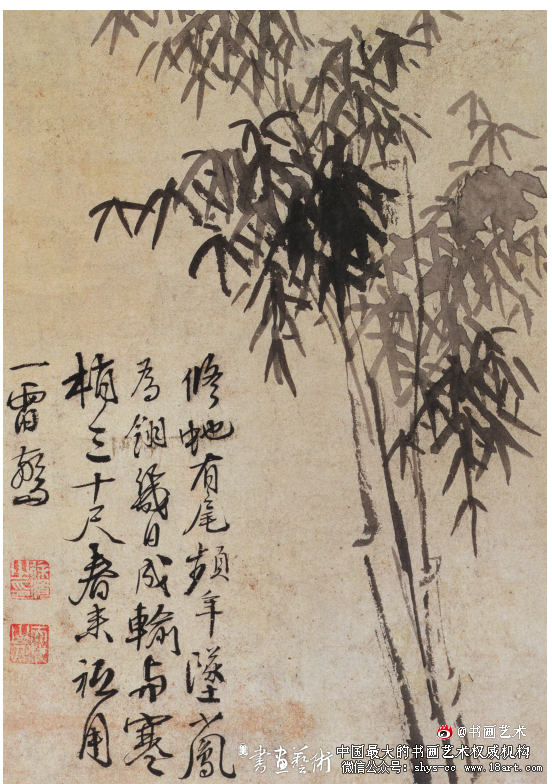 脩虵有尾頻年墜小鳳
為翎幾日成輸与寒
梢三十尺春来祗用
一雷驚
書畫藝術
@书画艺术
中国最大的书画艺术权威机构
微信公众号：shys-cc www.18art.com